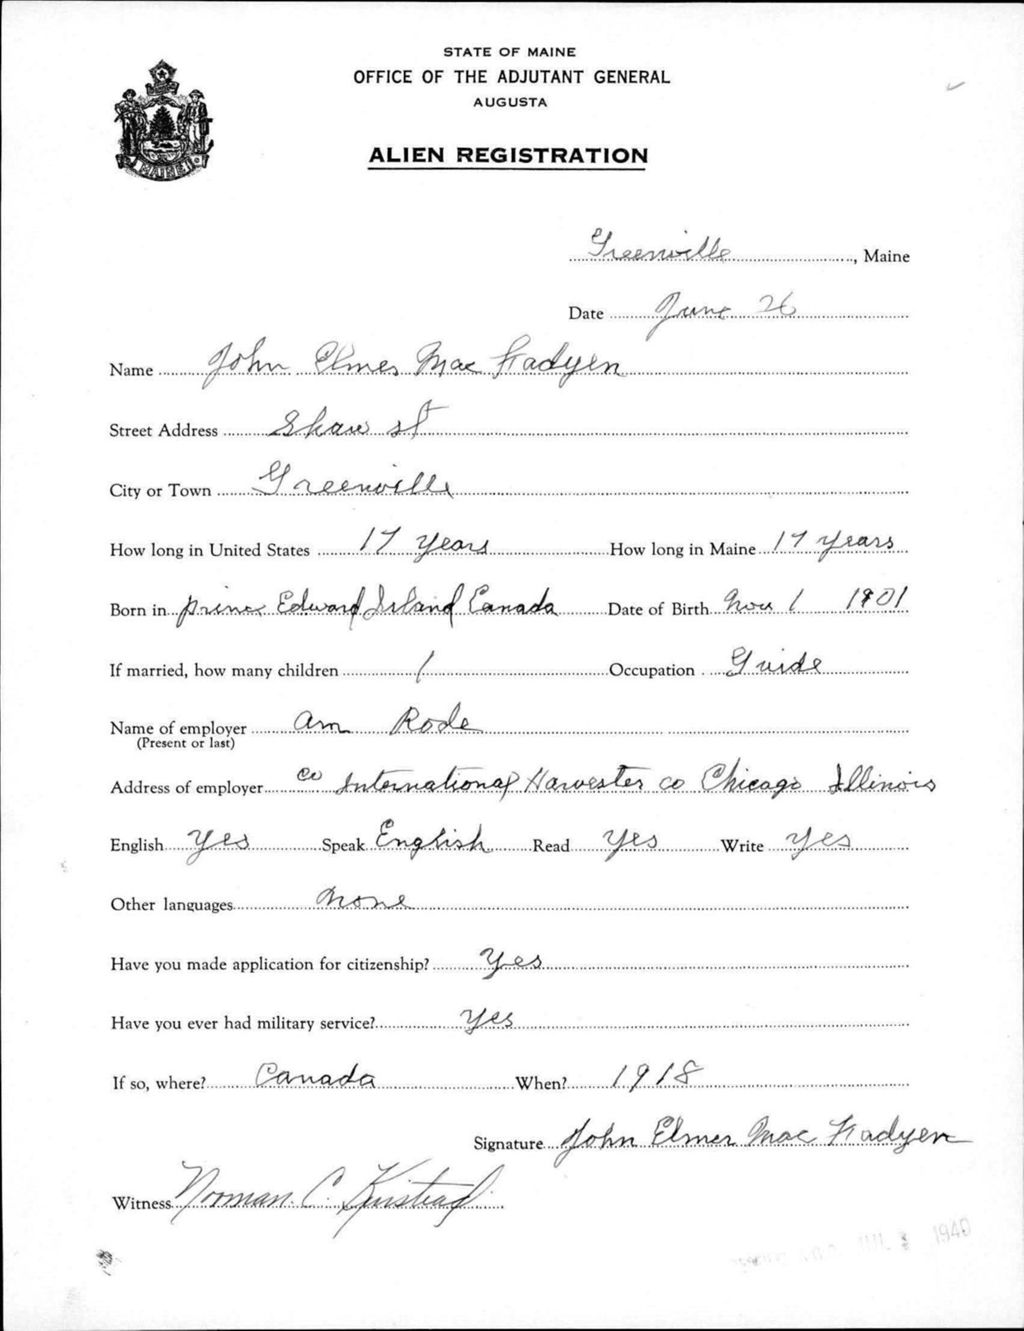 STATE OF MAINE
OFFICE OF THE ADJUTANT GENERAL
AUGUSTA
ALIEN REGISTRATION
MAINE
Greenville, Maine
Date June 26
Name John Elmer Mac Fadyen
Street Address Shaw st
City or Town Greenville
How long in United States 17 years How long in Maine 17 years
Born in prince Edward Island Canada Date of Birth Nov 1 1901
If married, how many children 1 Occupation Guide
Name of employer am Rode
(Present or last)
Address of employer Co International Harvester co Chicago Illinois
English Yes Speak English Read Yes Write Yes
Other languages None
Have you made application for citizenship? Yes
Have you ever had military service? Yes
If so, where? Canada When? 1918
Signature John Elmer Mac Fadyen
Witness Norman C. Kinstead
1940